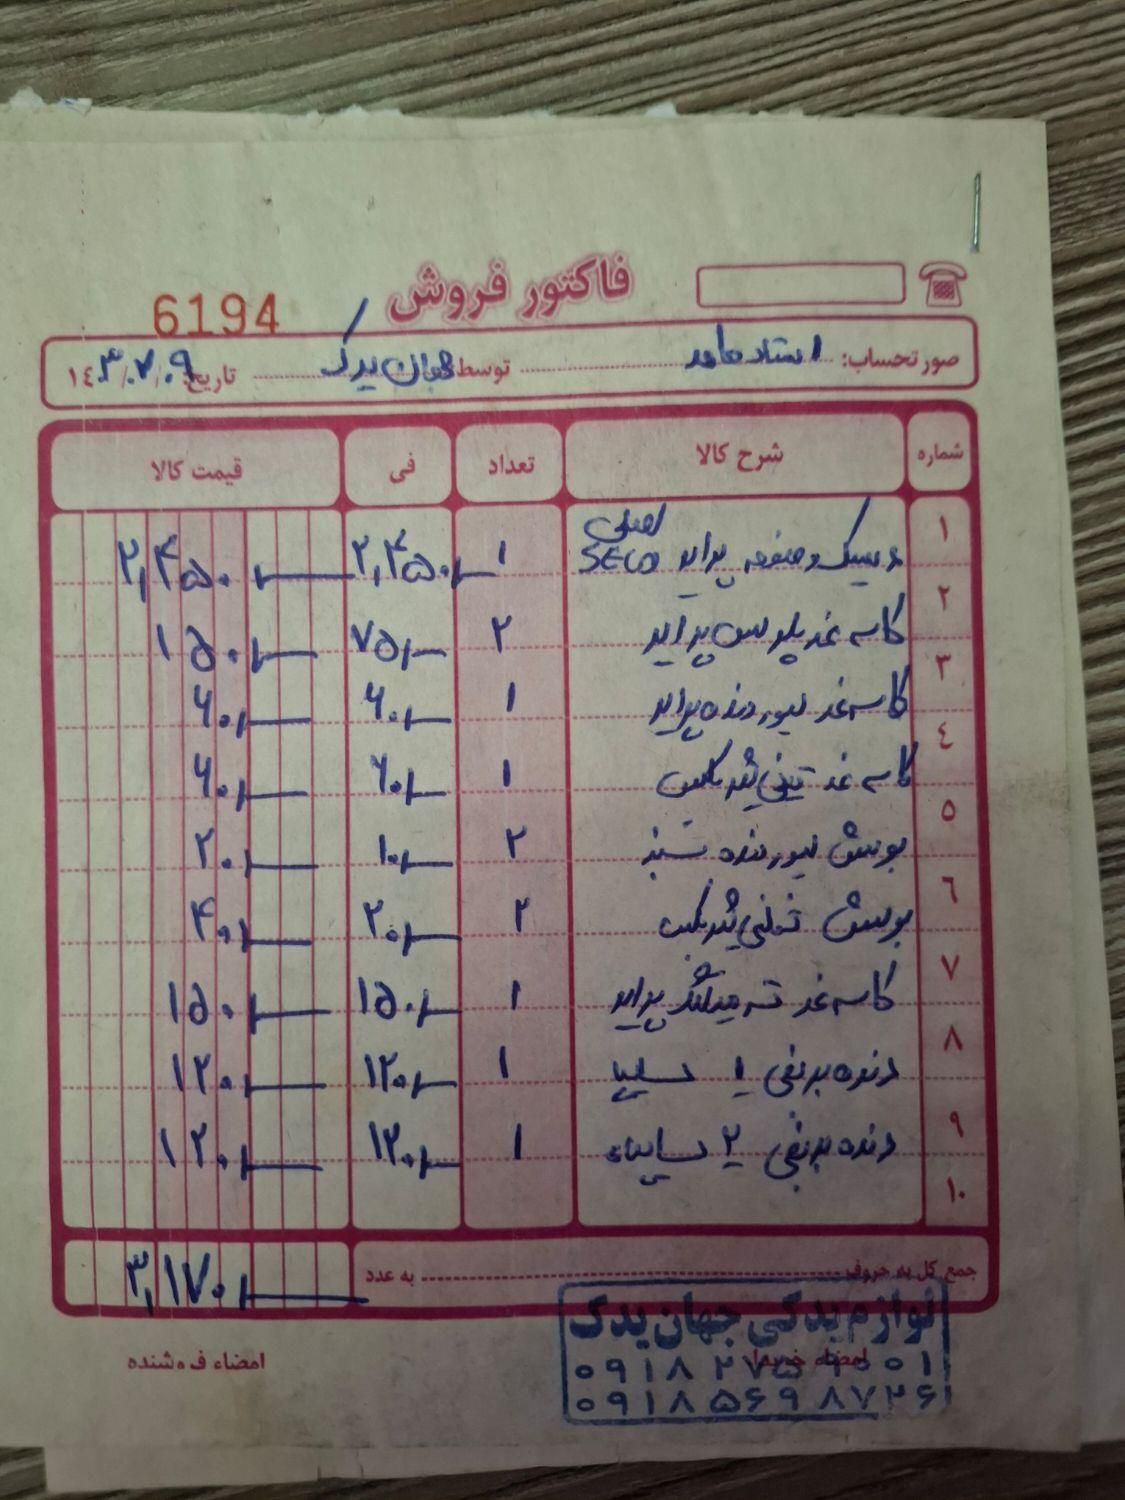 فاکتور فروش
6194
صورتحساب: استاد حامد توسط جهان یدک تاریخ: ۱۴۰۳/۰۷/۰۹
شماره شرح کالا تعداد فی قیمت کالا
۱ دیسک و صفحه پراید اصلی SECO ۱ ۲,۴۵۰,— ۲,۴۵۰,—
۲ کاسه نمد پلوس پراید ۲ ۷۵,— ۱۵۰,—
۳ کاسه نمد لیور دنده پراید ۱ ۶۰,— ۶۰,—
۴ کاسه نمد ۱ ۶۰,— ۶۰,—
۵ بوش لیور دنده ۲ ۱۰,— ۲۰,—
۶ بوش ۲ ۲۰,— ۴۰,—
۷ کاسه نمد ته میلنگ پراید ۱ ۱۵۰,— ۱۵۰,—
۸ دنده برنجی ۱ سایپا ۱ ۱۲۰,— ۱۲۰,—
۹ دنده برنجی ۲ سایپا ۱ ۱۲۰,— ۱۲۰,—
۱۰
جمع کل به حروف به عدد ۳,۱۷۰,—
لوازم یدکی جهان یدک
امضاء خریدار امضاء فروشنده
۰۹۱۸۵۶۹۸۷۲۶